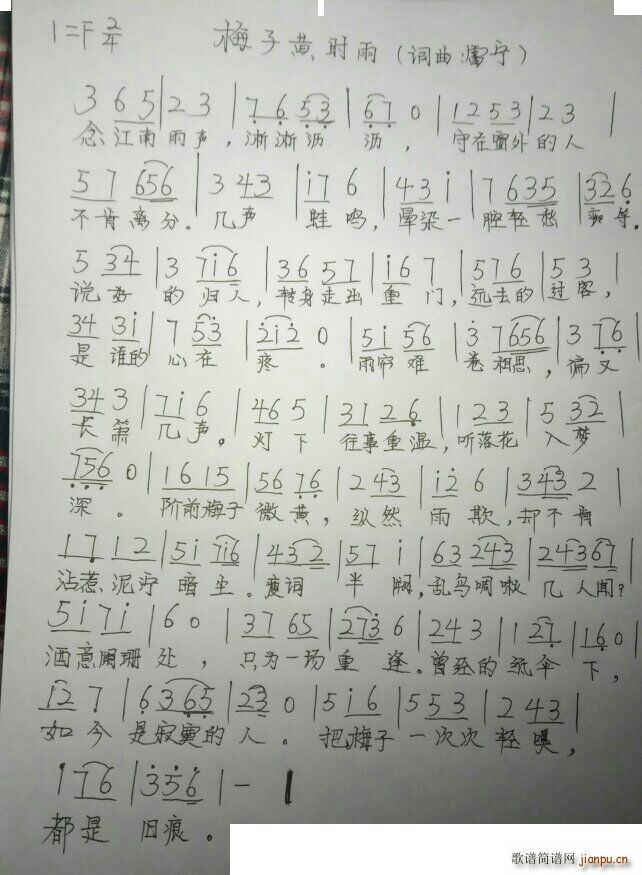 1=F 2/4 梅子黄时雨（词曲:霈宁）
3 6 5 | 2 3 | 7 6 5 3 | 6 7 0 | 1 2 5 3 | 2 3 |
念江南雨声，淅淅沥 沥，守在窗外的人
5 7 6 5 6 | 3 4 3 | i 7 6 | 4 3 i | 7 6 3 5 | 3 2 6
不肯离分。几声 蛙鸣，晕染一 腔轻愁
5 3 4 | 3 7 i 6 | 3 6 5 7 | i 6 7 | 5 7 6 | 5 3 |
说好 的 归人，转身走出 重 门，远去的 过客，
3 4 3 i | 7 5 3 | 2 i 2 0 | 5 i 5 6 | 3 7 6 5 6 | 3 7 6 |
是 谁的 心在 疼 。雨帘难 卷相思，偏又
3 4 3 | 7 i 6 | 4 6 5 | 3 1 2 6 | 1 2 3 | 5 3 2 |
长箫 几声。灯 下 往事重温，听落花 入梦
7 5 6 0 | 1 6 1 5 | 5 6 7 6 | 2 4 3 | i 2 6 | 3 4 3 2 |
深 。 阶前梅子 微黄，纵然 雨欺，却不肯
1 7 1 2 | 5 i 7 i 6 | 4 3 2 | 5 7 i | 6 3 2 4 3 | 2 4 3 6 7 |
沾惹泥泞 暗生。瘦词 半 阙，乱鸟啁啾 几人闻?
5 i 7 i | 6 0 | 3 7 6 5 | 2 7 3 6 | 2 4 3 | 1 2 7 | 1 6 0 |
酒意阑珊 处，只为一场 重 逢。曾经的 纸伞 下，
i 2 7 | 6 3 6 5 | 2 3 0 | 5 i 6 | 5 5 3 | 2 4 3 |
如今 是寂寞的 人。把梅子 一次次 轻嗅，
1 7 6 | 3 5 6 | - |
都是 旧痕。
歌谱简谱网 jianpu.cn